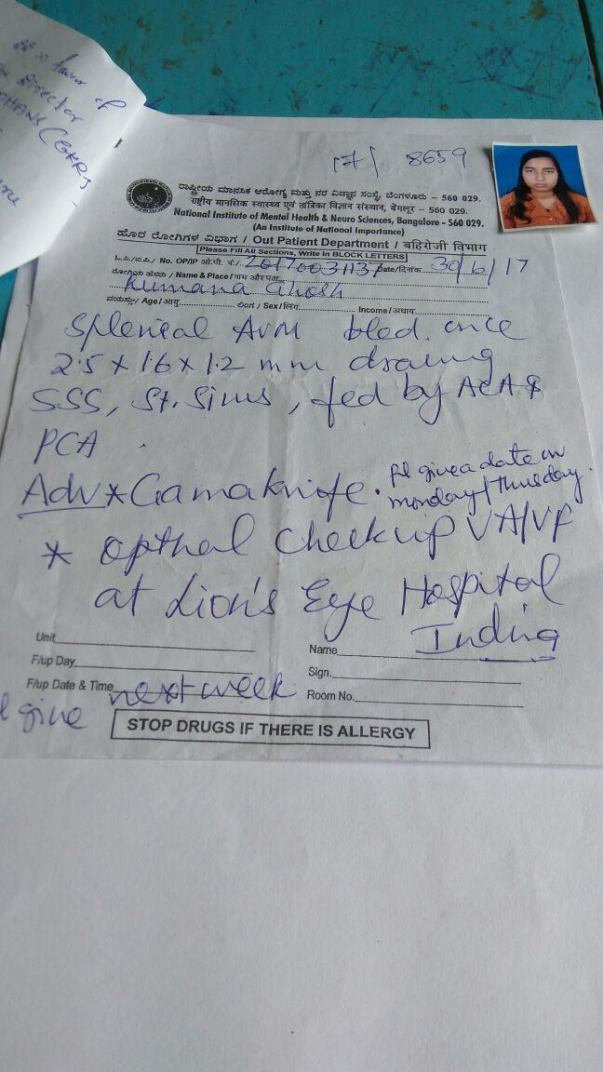 17/ 8659
ರಾಷ್ಟ್ರೀಯ ಮಾನಸಿಕ ಆರೋಗ್ಯ ಮತ್ತು ನರ ವಿಜ್ಞಾನ ಸಂಸ್ಥೆ, ಬೆಂಗಳೂರು - 560 029.
राष्ट्रीय मानसिक स्वास्थ्य एवं तंत्रिका विज्ञान संस्थान, बेंगलूर - 560 029.
National Institute of Mental Health & Neuro Sciences, Bangalore - 560 029.
(An Institute of National Importance)
ಹೊರ ರೋಗಿಗಳ ವಿಭಾಗ / Out Patient Department / बहिरोगी विभाग
Please Fill All Sections, Write in BLOCK LETTERS
No. OP/IP 20170031137 Date/दिनांक 30/6/17
Name & Place/नाम और पता
Rumana Ghosh
Age / आयु Sex / लिंग Income / आय
Splenial AVM bled once
2.5 x 1.6 x 1.2 mm draining
SSS, St. Sinus, fed by ACA &
PCA
Adv * Gamaknife. pl give a date on
monday / Thursday.
* opthal check up VA/VF
at Lion's Eye Hospital
Unit
Name
F/up Day
Sign.
F/up Date & Time next week
Room No.
give
STOP DRUGS IF THERE IS ALLERGY